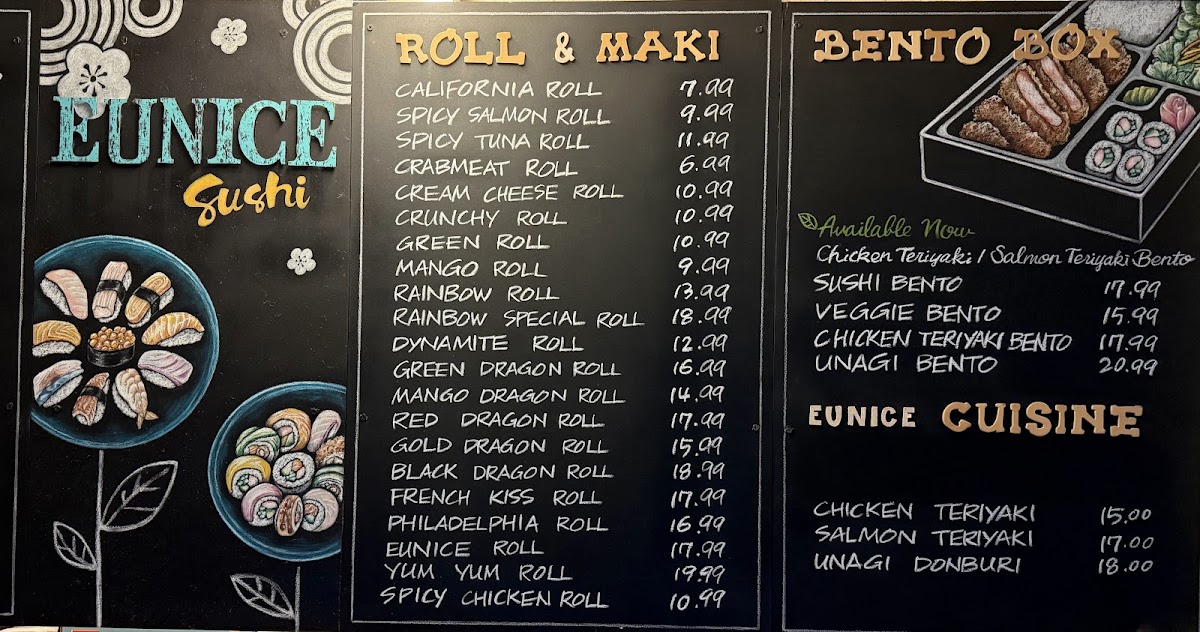 EUNICE
Sushi
ROLL & MAKI
CALIFORNIA ROLL 7.99
SPICY SALMON ROLL 9.99
SPICY TUNA ROLL 11.99
CRABMEAT ROLL 6.99
CREAM CHEESE ROLL 10.99
CRUNCHY ROLL 10.99
GREEN ROLL 10.99
MANGO ROLL 9.99
RAINBOW ROLL 13.99
RAINBOW SPECIAL ROLL 18.99
DYNAMITE ROLL 12.99
GREEN DRAGON ROLL 16.99
MANGO DRAGON ROLL 14.99
RED DRAGON ROLL 17.99
GOLD DRAGON ROLL 15.99
BLACK DRAGON ROLL 18.99
FRENCH KISS ROLL 17.99
PHILADELPHIA ROLL 16.99
EUNICE ROLL 17.99
YUM YUM ROLL 19.99
SPICY CHICKEN ROLL 10.99
BENTO BOX
Available Now
Chicken Teriyaki / Salmon Teriyaki Bento
SUSHI BENTO 17.99
VEGGIE BENTO 15.99
CHICKEN TERIYAKI BENTO 17.99
UNAGI BENTO 20.99
EUNICE CUISINE
CHICKEN TERIYAKI 15.00
SALMON TERIYAKI 17.00
UNAGI DONBURI 18.00